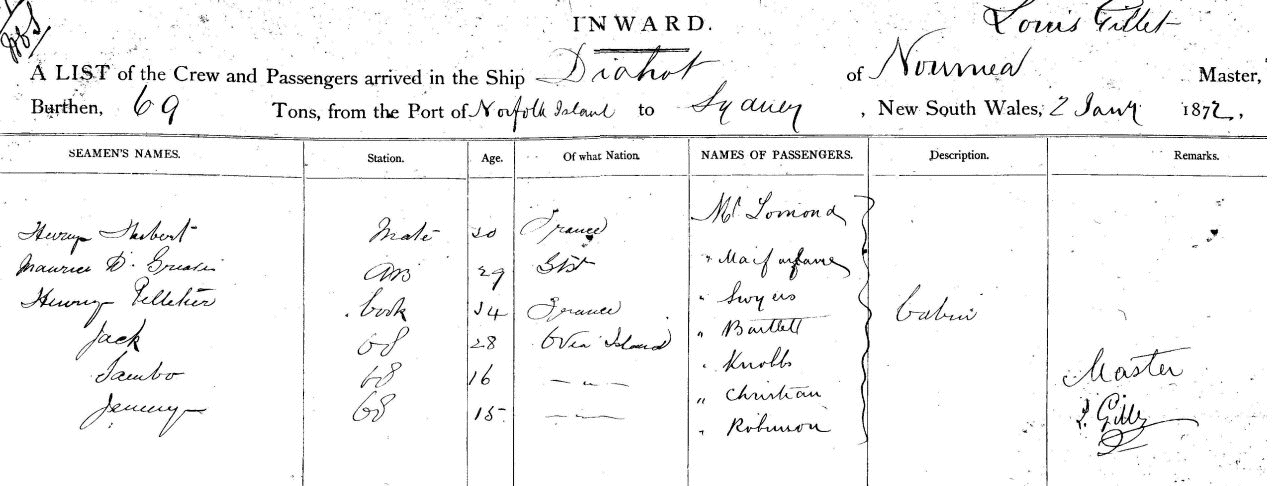 INWARD.
Louis Gillet
A LIST of the Crew and Passengers arrived in the Ship Diahot of Noumea Master,
Burthen, 69 Tons, from the Port of Norfolk Island to Sydney, New South Wales, 2 Jany 1872,
SEAMEN'S NAMES. Station. Age. Of what Nation. NAMES OF PASSENGERS. Description. Remarks.
Mr Lomond
Henry Mate 30 France
Maurice D. AB 29 " Macfarlane
Henry Pelletier Cook 34 France " Swyers Cabin
Jack 28 Island " Bartlett
Sambo 16 — " — " Knobbs Master
Jemmy 15 — " — " Christian L. Gillet
" Robinson